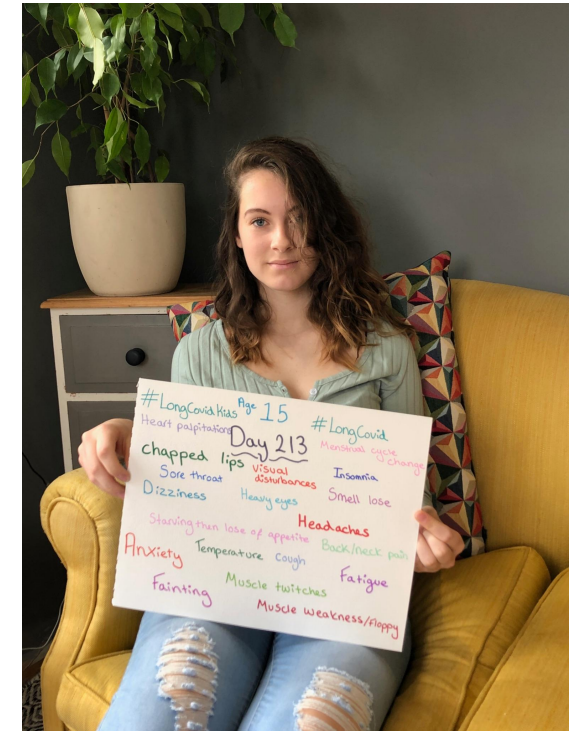 #LongCovidKids Age 15 #LongCovid
Heart palpitations Day 213 Menstrual cycle change
chapped lips
Sore throat Visual disturbances Insomnia
Dizziness Heavy eyes Smell lose
Starving then lose of appetite Headaches
Anxiety Temperature Cough Back/neck pain
Fainting Muscle twitches Fatigue
Muscle weakness/floppy